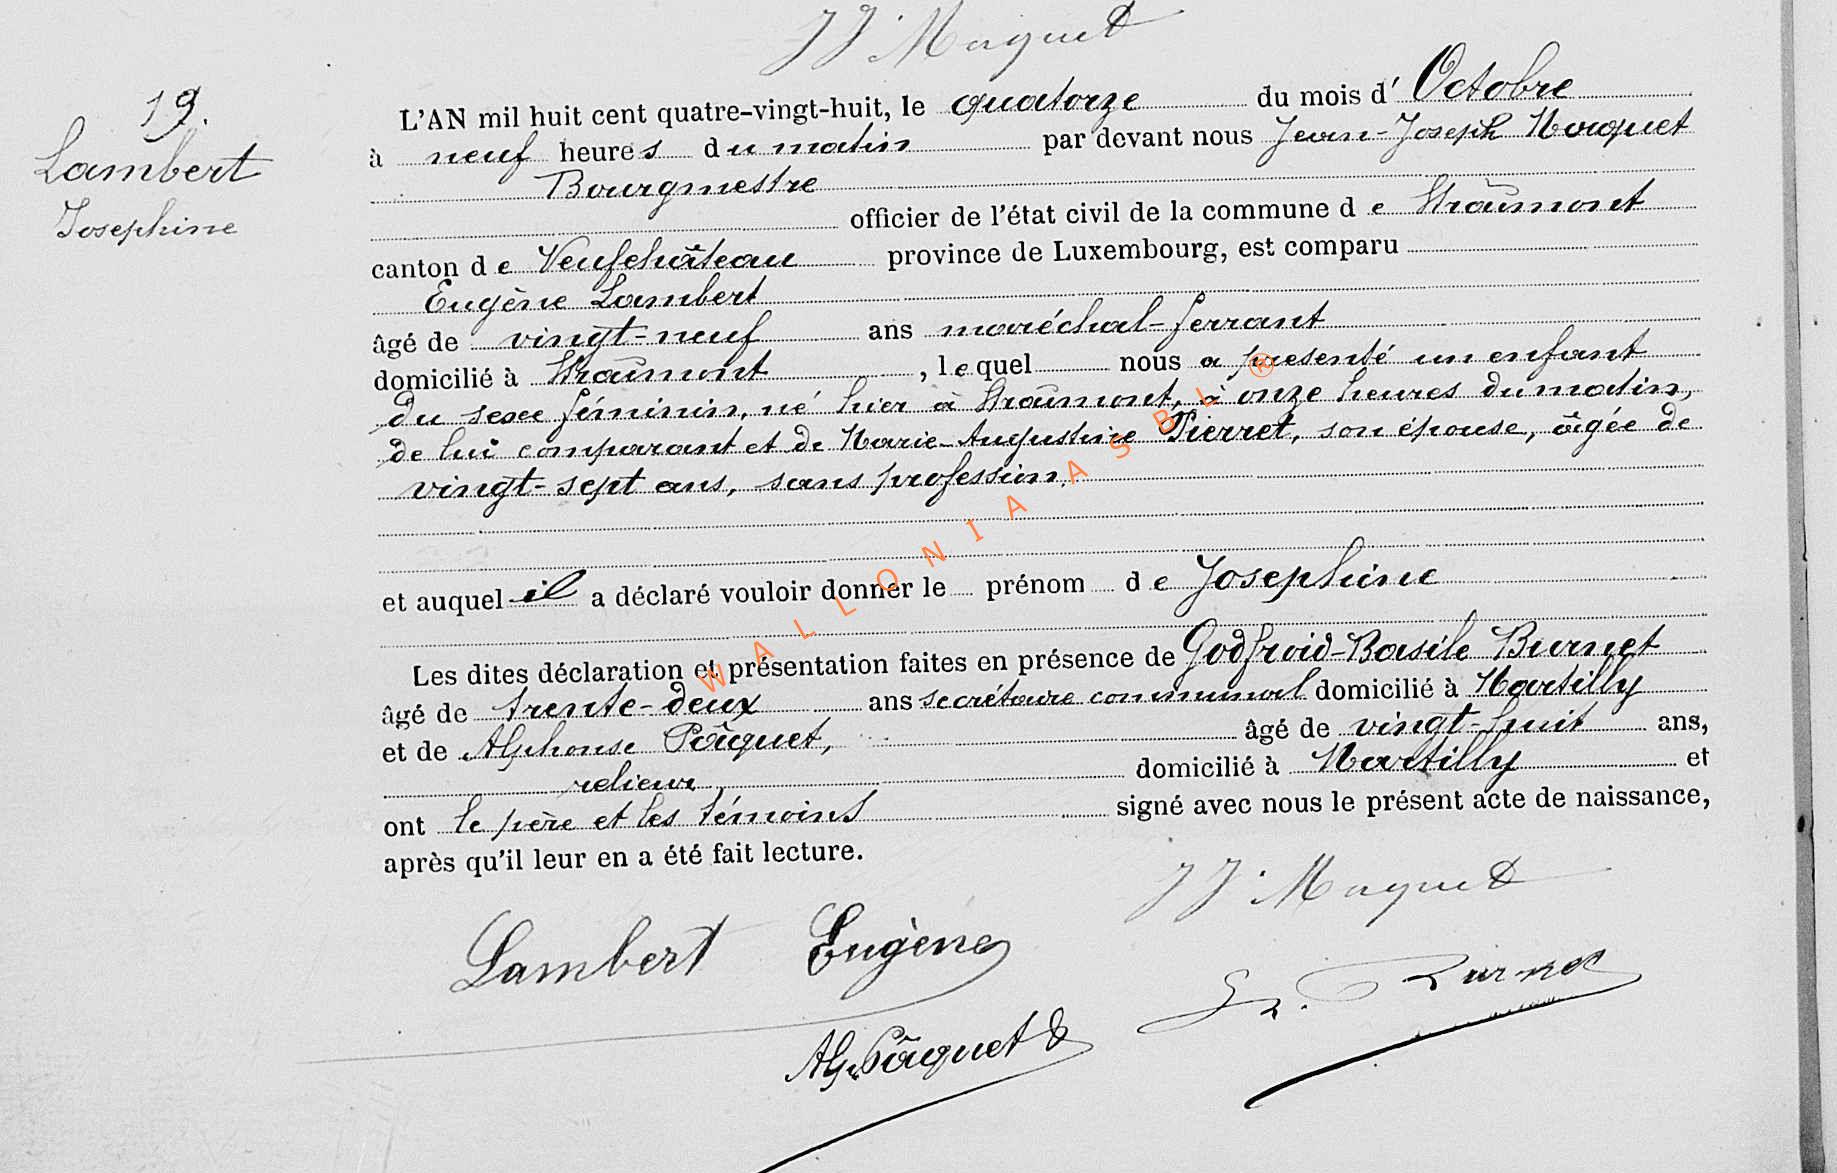 JJ Maquet
19.
Lambert
Josephine
L'AN mil huit cent quatre-vingt-huit, le quatorze du mois d' Octobre
à neuf heures du matin par devant nous Jean-Joseph Maquet
Bourgmestre
officier de l'état civil de la commune de Straimont
canton de Neufchâteau province de Luxembourg, est comparu
Eugène Lambert
âgé de vingt-neuf ans maréchal-ferrant
domicilié à Straimont, lequel nous a presenté un enfant
du sexe féminin, né hier à Straimont, à onze heures du matin,
de lui comparant et de Marie-Augustine Pierret, son épouse, âgée de
vingt-sept ans, sans profession,
et auquel il a déclaré vouloir donner le prénom de Josephine
Les dites déclaration et présentation faites en présence de Godfroid-Basile Burnet
âgé de trente-deux ans secrétaire communal domicilié à Martilly
et de Alphonse Pâquet, âgé de vingt-huit ans,
relieur domicilié à Martilly et
ont le père et les témoins signé avec nous le présent acte de naissance,
après qu'il leur en a été fait lecture.
JJ Maquet
Lambert Eugène
Burnet
Alp. Pâquet
WALLONIA ASBL ®